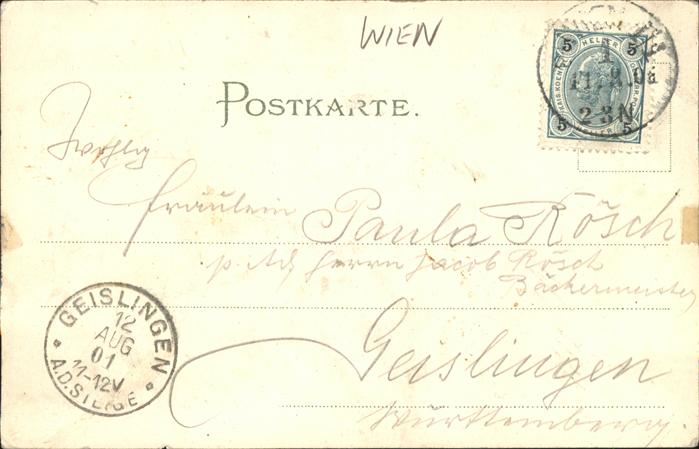 WIEN
5 HELLER 5
5 HELLER 5
WIEN
1
11. 8. 01
2-3N
POSTKARTE.
Fräulein Paula Rösch
p. Ad. Herrn Jacob Rösch
Bäckermeister
Geislingen
Württemberg.
GEISLINGEN
12
AUG
01
11-12V
A.D.STEIGE